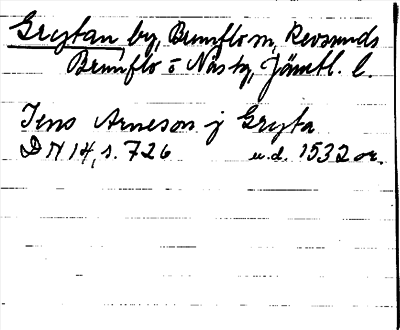 Grytan by, Brunflo sn, Revsunds
Brunflo o Näs tg, Jämtl. l.
Jens Arneson j Gryta
DN 14, s. 726 u.d. 1532 or.